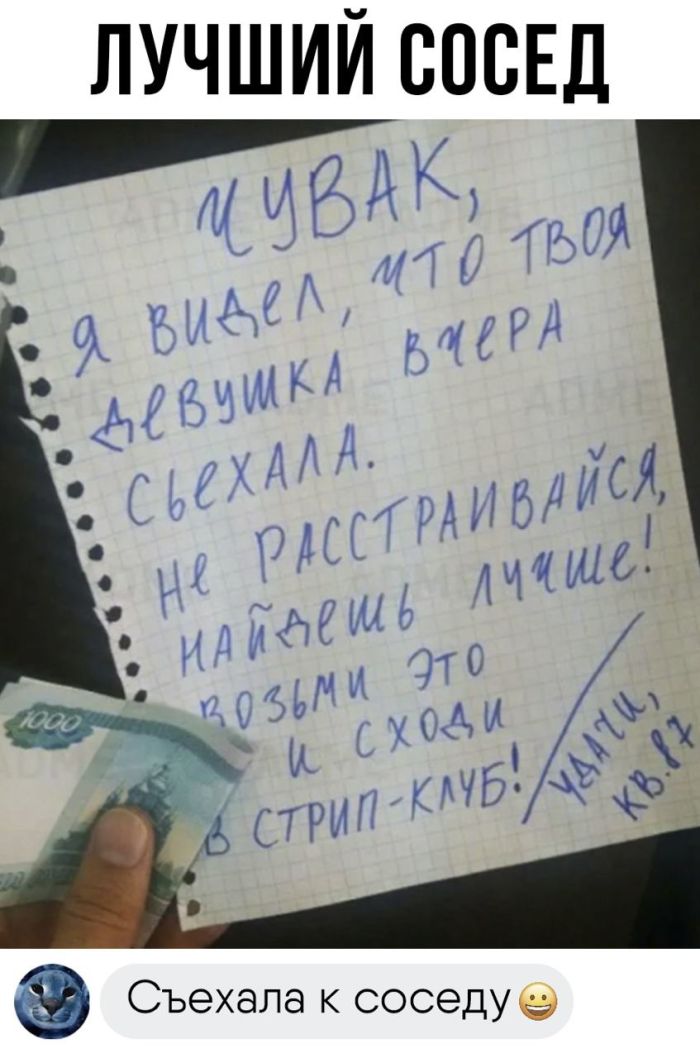 ЛУЧШИЙ СОСЕД
ЧУВАК,
Я ВИДЕЛ, ЧТО ТВОЯ
ДЕВУШКА ВЧЕРА
СЬЕХАЛА.
НЕ РАССТРАИВАЙСЯ,
НАЙДЕШЬ ЛУЧШЕ!
ВОЗЬМИ ЭТО
И СХОДИ
В СТРИП-КЛУБ!
УДАЧИ,
КВ. 87
1000
Съехала к соседу😀